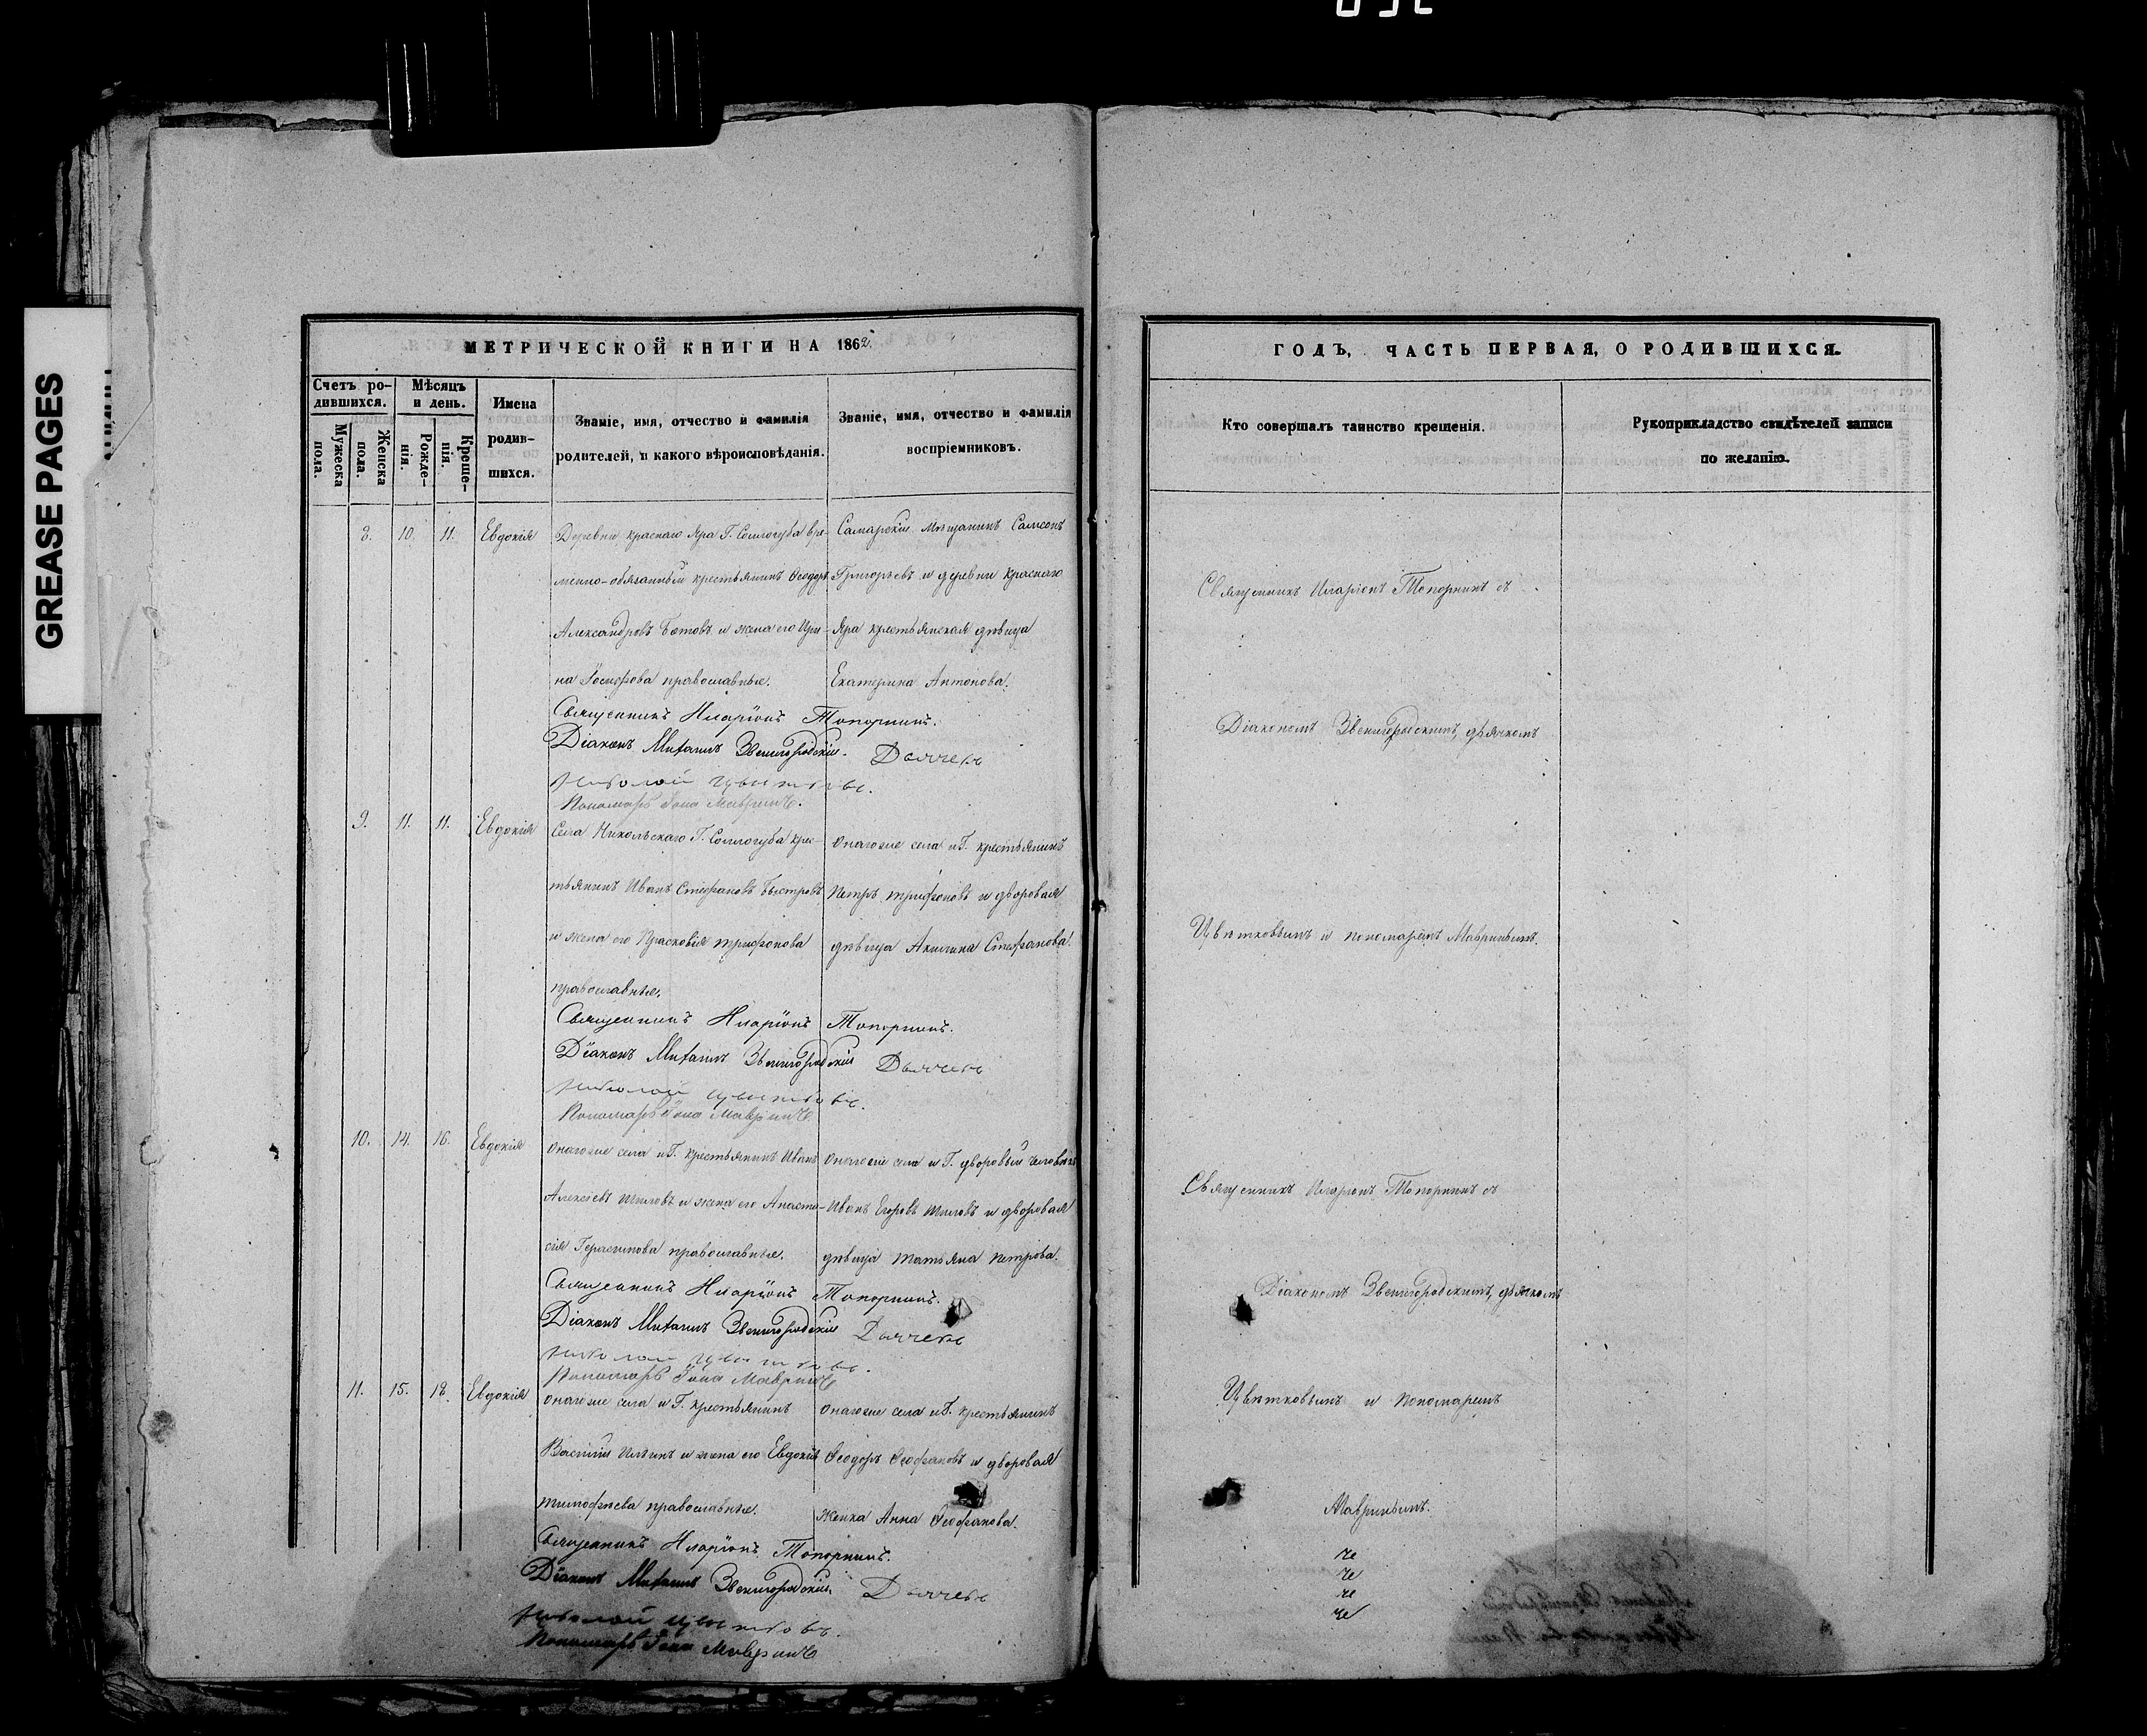 GREASE PAGES
МЕТРИЧЕСКОЙ КНИГИ НА 1862.
Счетъ ро-
дившихся.
Мужеска
пола.
Женска
пола.
Мѣсяцъ
и день.
Рожде-
нія.
Креще-
нія.
Имена
родив-
шихся.
Званіе, имя, отчество и фамилія
родителей, и какого вѣроисповѣданія.
Званіе, имя, отчество и фамилія
воспріемниковъ.
8. 10. 11. Евдокія
Деревни Краснаго Яра Г. Соллогуба вре-
менно-обязанный крестьянинъ Ѳеодоръ
Александровъ и жена его Ири-
на православные.
Самарскій Мѣщанинъ Самсонъ
Григорьевъ и деревни Краснаго
Яра крестьянская дѣвица
Екатерина Антонова.
Священникъ Иларіонъ Топорнинъ.
Діаконъ Михаилъ Звенигородскій. Дьячекъ
Николай Цветковъ.
Пономарь Іона Мавринъ.
9. 11. 11. Евдокія
Села Никольскаго Г. Соллогуба крес-
тьянинъ Иванъ Стефановъ Быстровъ
и жена его Прасковія Трифонова
православные.
Онагоже села и Г. крестьянинъ
Петръ Трифоновъ и дворовая
дѣвица Акилина Стефанова.
Священникъ Иларіонъ Топорнинъ.
Діаконъ Михаилъ Звенигородскій Дьячекъ
Николай Цветковъ.
Пономарь Іона Мавринъ
10. 14. 16. Евдокія
Онагоже села и Г. крестьянинъ Иванъ
Алексѣевъ Шиловъ и жена его Анаста-
сія Герасимова православные.
Онагоже села и Г. дворовый человѣкъ
Иванъ Егоровъ Шиловъ и дворовая
дѣвица Татьяна Петрова.
Священникъ Иларіонъ Топорнинъ.
Діаконъ Михаилъ Звенигородскій Дьячекъ
Николай Цветковъ.
Пономарь Іона Мавринъ
11. 15. 18. Евдокія
Онагоже села и Г. крестьянинъ
Василій Ильинъ и жена его Евдокія
Тимофѣева православные.
Онагоже села и Г. крестьянинъ
Ѳеодоръ Ѳеофановъ и дворовая
женка Анна Ѳеофанова.
Священникъ Иларіонъ Топорнинъ.
Діаконъ Михаилъ Звенигородскій. Дьячекъ
Николай Цветковъ.
Пономарь Іона Мавринъ
ГОДЪ, ЧАСТЬ ПЕРВАЯ, О РОДИВШИХСЯ.
Кто совершалъ таинство крещенія.
Рукоприкладство свидѣтелей записи
по желанію.
Священникъ Иларіонъ Топорнинъ съ
Діакономъ Звенигородскимъ, дьячкомъ
Цвѣтковымъ и пономаремъ Мавринымъ.
Священникъ Иларіонъ Топорнинъ съ
Діакономъ Звенигородскимъ, дьячкомъ
Цвѣтковымъ и пономаремъ
Мавринымъ.